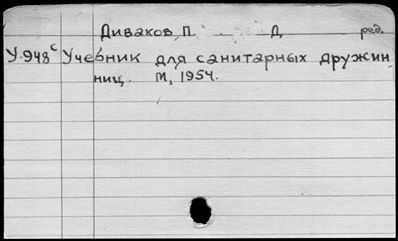 Диваков П. Д. ред.
У-948с Учебник для санитарных дружин
ниц. М, 1954.